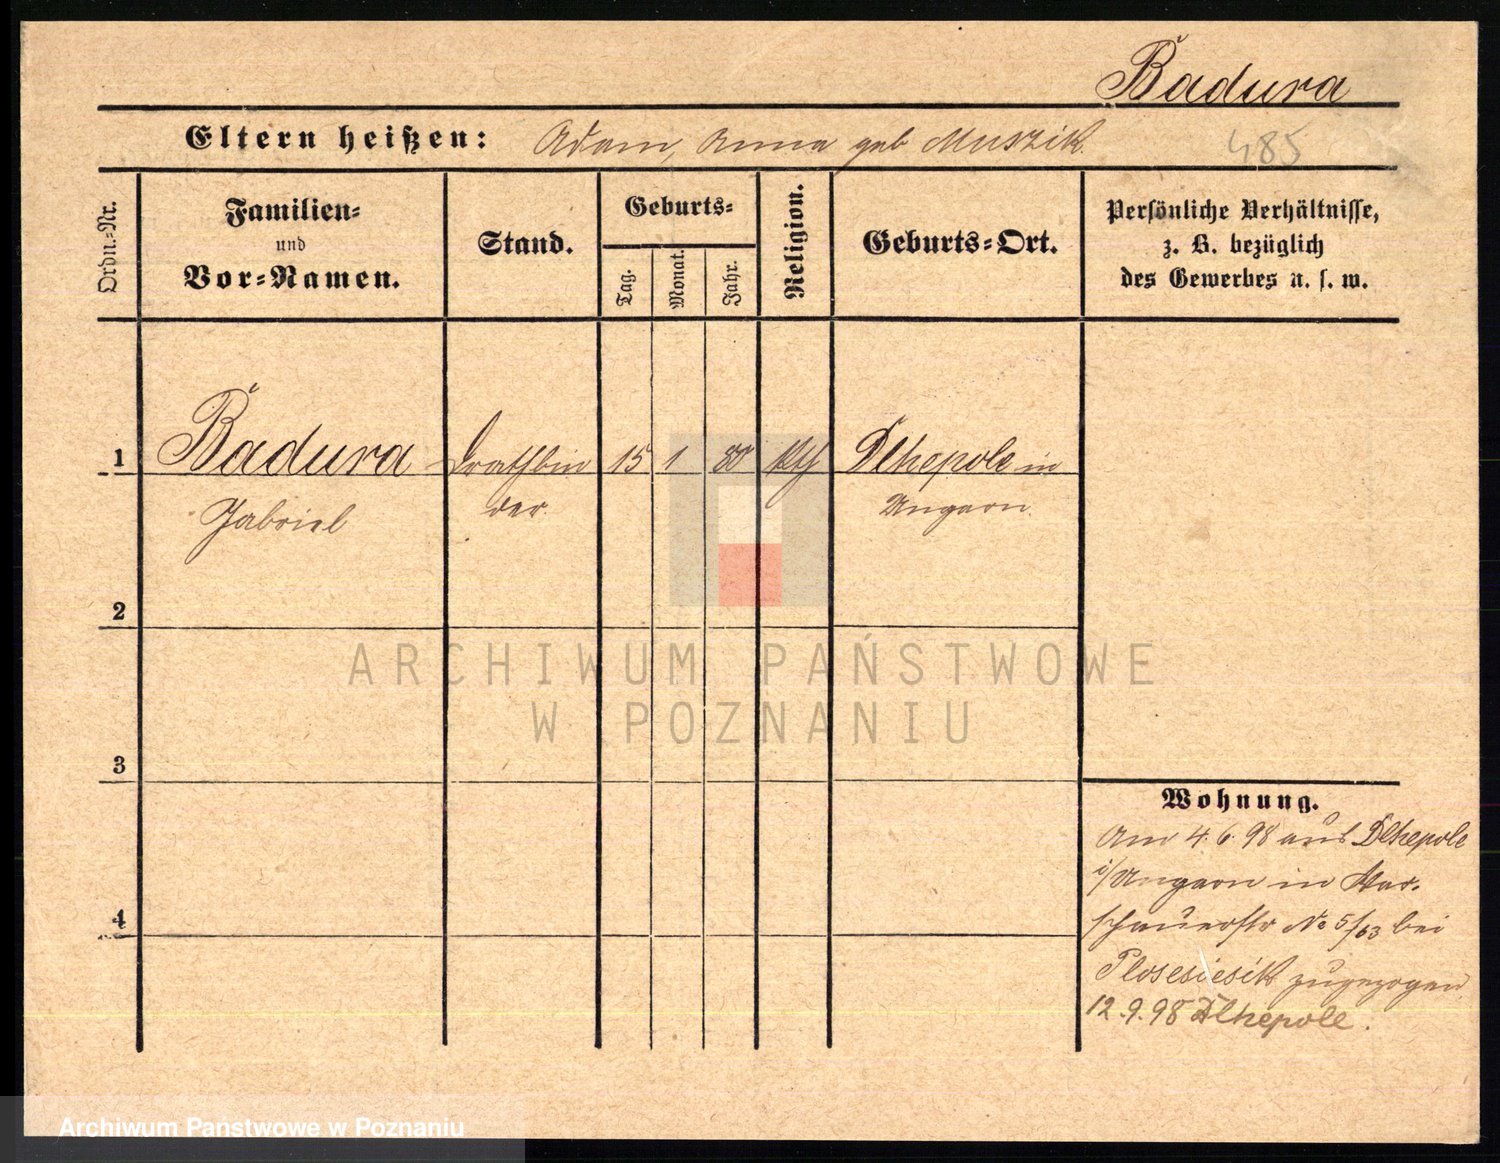 Badura
Eltern heißen: Adam, Anna geb Muszik.
485
Ordn.-Nr.
Familien-
und
Vor-Namen.
Stand.
Geburts-
Tag.
Monat.
Jahr.
Religion.
Geburts-Ort.
Persönliche Verhältnisse,
z. B. bezüglich
des Gewerbes u. s. w.
1 Badura Drathbin 15 1 80 kth Dlhepole in
Gabriel der Ungarn
2
ARCHIWUM PAŃSTWOWE
W POZNANIU
3
Wohnung.
Am 4.6.98 aus Dlhepole
i/Ungarn in War-
schauerstr No 5/63 bei
zugezogen
12.9.98 Dlhepole.
4
Archiwum Państwowe w Poznaniu